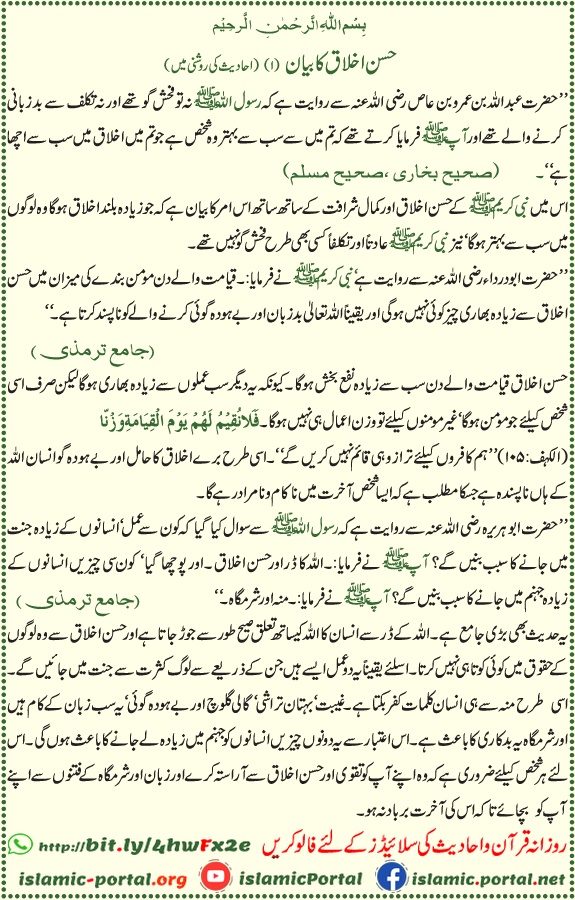 بِسْمِ اللهِ الرَّحْمٰنِ الرَّحِيْمِ
حسن اخلاق کا بیان (۱) (احادیث کی روشنی میں)
’’حضرت عبداللہ بن عمرو بن عاص رضی اللہ عنہ سے روایت ہے کہ رسول اللہ ﷺ نہ تو فحش گو تھے اور نہ تکلف سے بدزبانی
کرنے والے تھے اور آپ ﷺ فرمایا کرتے تھے کہ تم میں سے سب سے بہتر وہ شخص ہے جو تم میں اخلاق میں سب سے اچھا
ہے‘‘۔ (صحیح بخاری ،صحیح مسلم)
اس میں نبی کریم ﷺ کے حسن اخلاق اور کمال شرافت کے ساتھ ساتھ اس امر کا بیان ہے کہ جو زیادہ بلند اخلاق ہوگا وہ لوگوں
میں سب سے بہتر ہوگا‘ نیز نبی کریم ﷺ عادتاً اور تکلفاً کسی بھی طرح فحش گو نہیں تھے۔
’’حضرت ابودرداء رضی اللہ عنہ سے روایت ہے‘ نبی کریم ﷺ نے فرمایا:۔ قیامت والے دن مؤمن بندے کی میزان میں حسن
اخلاق سے زیادہ بھاری چیز کوئی نہیں ہوگی اور یقیناً اللہ تعالیٰ بدزبان اور بے ہودہ گوئی کرنے والے کو ناپسند کرتا ہے۔‘‘
(جامع ترمذی)
حسن اخلاق قیامت والے دن سب سے زیادہ نفع بخش ہوگا۔ کیونکہ یہ دیگر سب عملوں سے زیادہ بھاری ہوگا لیکن صرف اسی
شخص کیلئے جو مومن ہوگا‘ غیر مومنوں کیلئے تو وزن اعمال ہی نہیں ہوگا۔ فَلَا نُقِيْمُ لَهُمْ يَوْمَ الْقِيَامَةِ وَزْنًا
(الکہف:۱۰۵) ’’ہم کافروں کیلئے ترازو ہی قائم نہیں کریں گے‘‘۔ اسی طرح برے اخلاق کا حامل اور بے ہودہ گو انسان اللہ
کے ہاں ناپسندہ ہے جسکا مطلب ہے کہ ایسا شخص آخرت میں ناکام و نامراد رہے گا۔
’’حضرت ابوہریرہ رضی اللہ عنہ سے روایت ہے کہ رسول اللہ ﷺ سے سوال کیا گیا کہ کون سے عمل‘ انسانوں کے زیادہ جنت
میں جانے کا سبب بنیں گے؟ آپ ﷺ نے فرمایا:۔ اللہ کا ڈر اور حسن اخلاق ۔اور پوچھا گیا‘ کون سی چیزیں انسانوں کے
زیادہ جہنم میں جانے کا سبب بنیں گے؟ آپ ﷺ نے فرمایا:۔ منہ اور شرمگاہ۔‘‘ (جامع ترمذی)
یہ حدیث بھی بڑی جامع ہے۔ اللہ کے ڈر سے انسان کا اللہ کیساتھ تعلق صحیح طور سے جوڑ جاتا ہے اور حسن اخلاق سے وہ لوگوں
کے حقوق میں کوئی کوتاہی نہیں کرتا۔ اسلئے یقیناً یہ دو عمل ایسے ہیں جن کے ذریعے سے لوگ کثرت سے جنت میں جائیں گے۔
اسی طرح منہ سے ہی انسان کلمات کفر بکتا ہے۔ غیبت‘ بہتان تراشی‘ گالی گلوچ اور بے ہودہ گوئی‘ یہ سب زبان کے کام ہیں
اور شرمگاہ یہ بدکاری کا باعث ہے۔ اس اعتبار سے یہ دونوں چیزیں انسانوں کو جہنم میں زیادہ لے جانے کا باعث ہوں گی۔ اس
لئے ہر شخص کیلئے ضروری ہے کہ وہ اپنے آپ کو تقویٰ اور حسن اخلاق سے آراستہ کرے اور زبان اور شرمگاہ کے فتنوں سے اپنے
آپ کو بچائے تاکہ اس کی آخرت برباد نہ ہو۔
روزانہ قرآن و احادیث کی سلائیڈز کے لئے فالو کریں http://bit.ly/4hwFx2e
islamic-portal.org islamicPortal islamic.portal.net